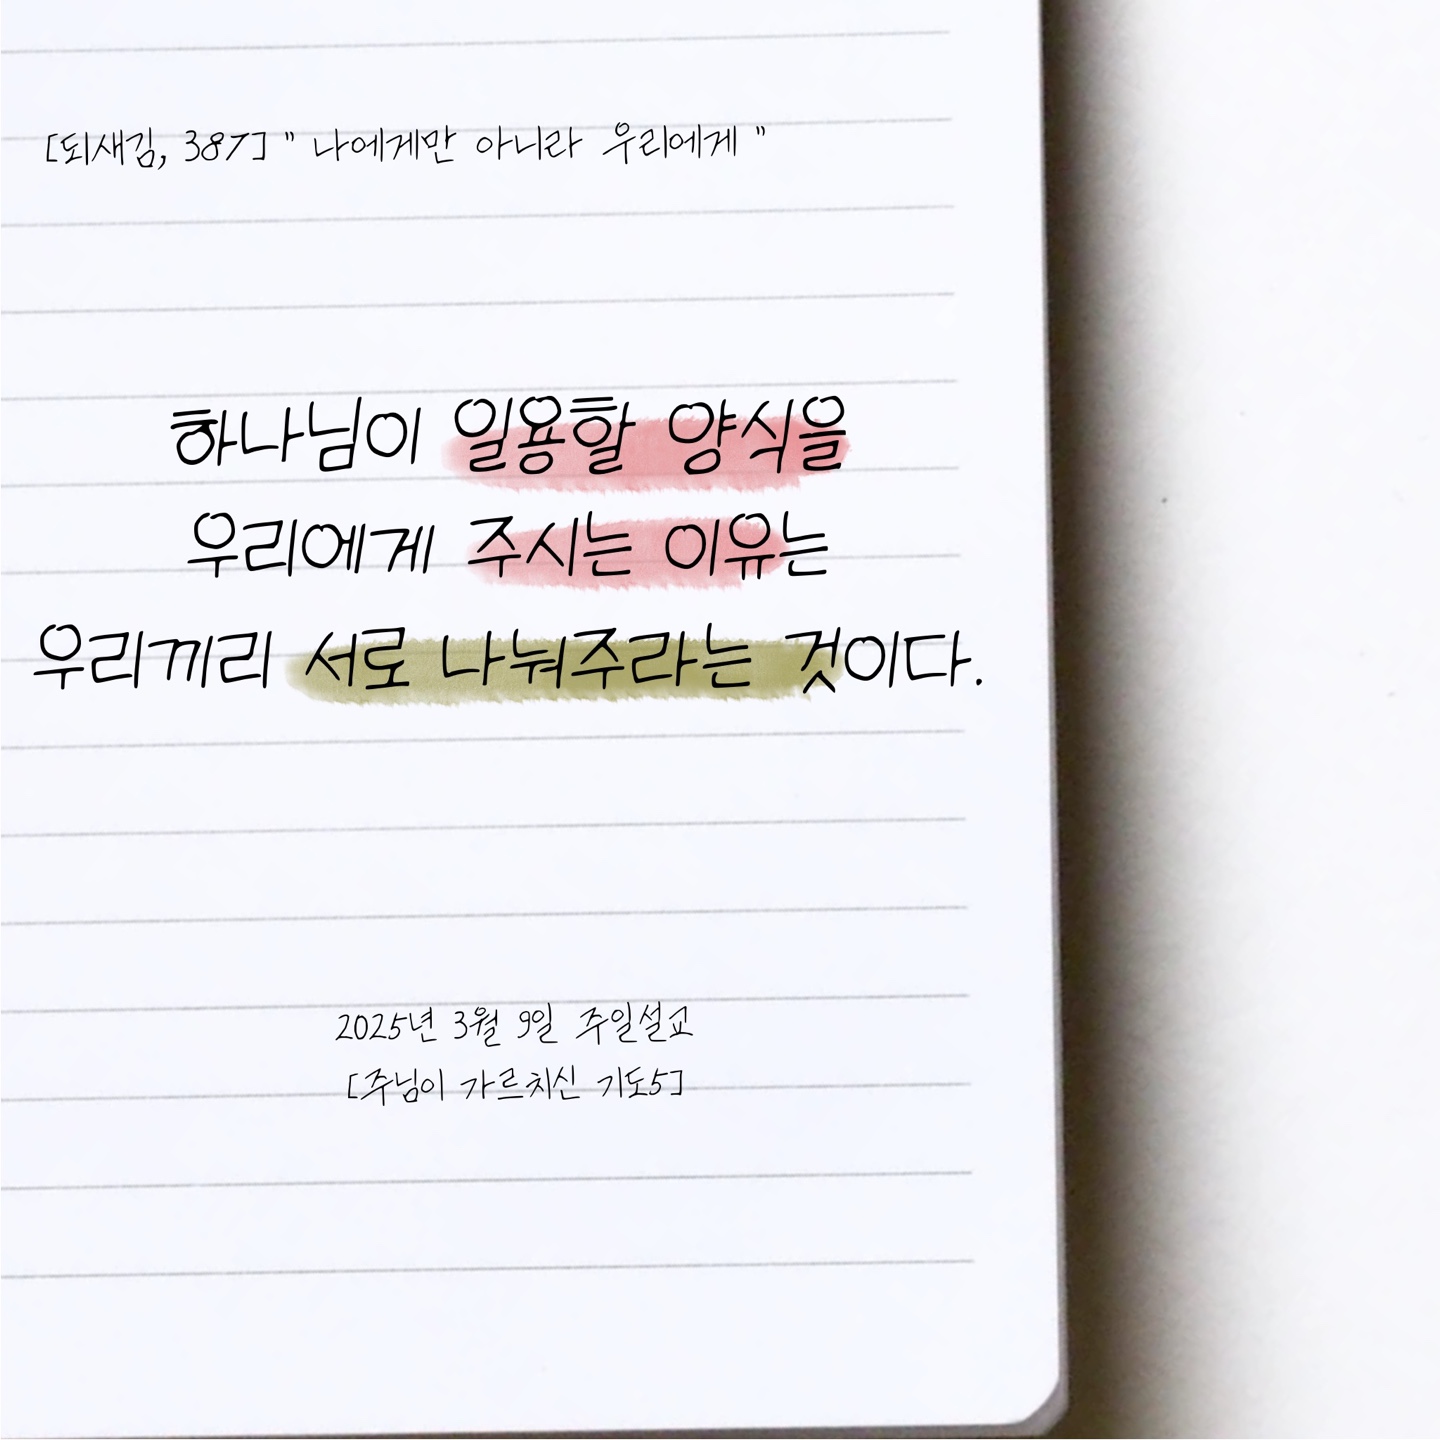 [되새김, 387] " 나에게만 아니라 우리에게 "
하나님이 일용할 양식을
우리에게 주시는 이유는
우리끼리 서로 나눠주라는 것이다.
2025년 3월 9일 주일설교
[주님이 가르치신 기도5]